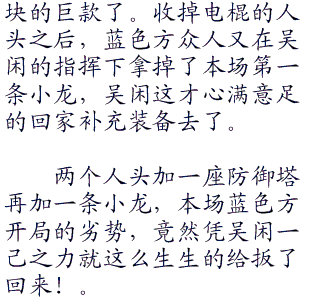 块的巨款了。收掉电棍的人
头之后，蓝色方众人又在吴
闲的指挥下拿掉了本场第一
条小龙，吴闲这才心满意足
的回家补充装备去了。
两个人头加一座防御塔
再加一条小龙，本场蓝色方
开局的劣势，竟然凭吴闲一
己之力就这么生生的给扳了
回来！。